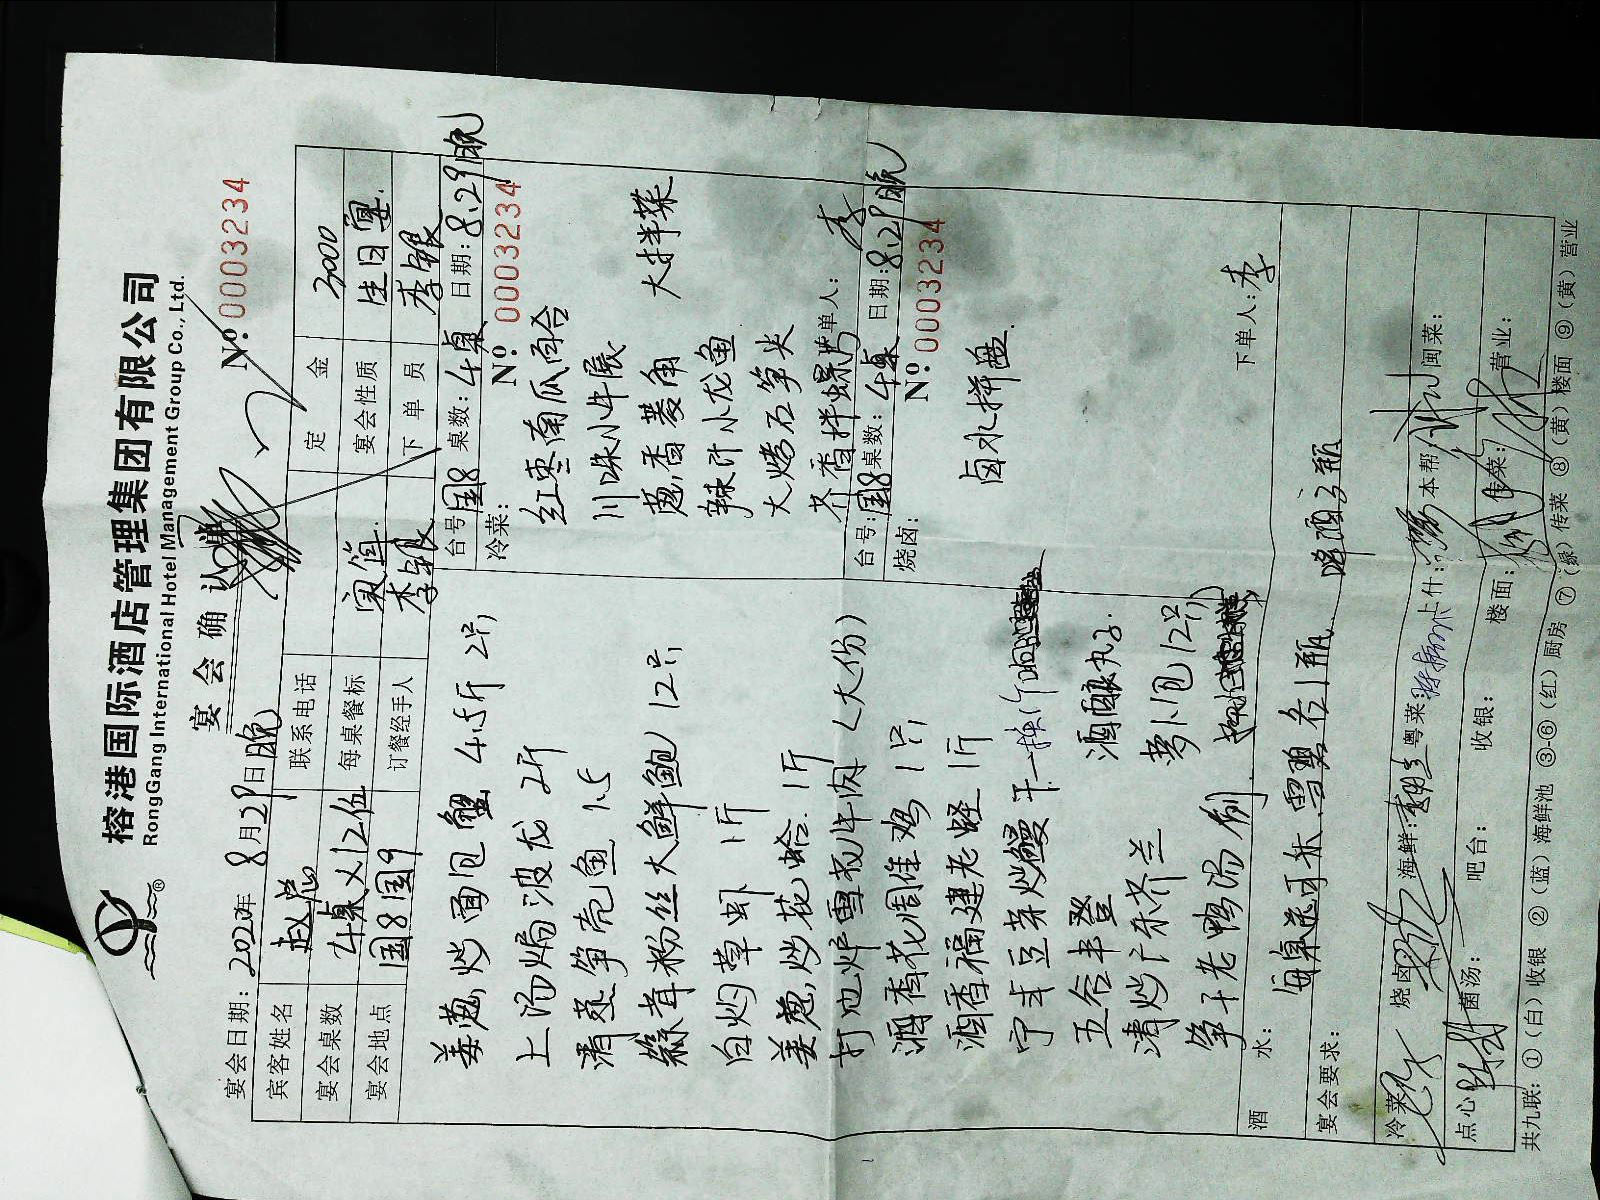 榕港国际酒店管理集团有限公司
RongGang International Hotel Management Group Co., Ltd.
®
宴会确认
Nº 0003234
宴会日期: 2022年 8月29日晚
宾客姓名 赵总 联系电话 定金 3000
宴会桌数 4桌 每桌餐标 实值. 宴会性质 生日宴.
宴会地点 国8国9 订餐经手人 李银 下单员 李银
姜葱炒面包蟹 4.5斤 2只
上汤焗波龙 2斤
清蒸笋壳鱼 1.5
蒜茸粉丝大鲜鲍 12只
白灼草虾 1斤
姜葱炒花蛤 1斤
打边炉雪花牛肉 (大份)
酒香花雕佳鸡 1只
酒香福建老蛏 1斤
五谷丰登
酒酿丸子
清炒广东芥兰
萝卜包 12只
笋干老鸭汤 例
台号: 国8 桌数: 4桌 日期: 8.29晚
冷菜:
Nº 0003234
红枣南瓜百合
川味小牛展
葱香菱角
辣汁小龙鱼
大烤石笋尖
大拌菜
下单人: 李
台号: 国8 桌数: 4桌 日期: 8.29晚
烧卤:
Nº 0003234
卤水拼盘.
下单人: 李
酒水:
每桌送可乐.雪碧各1瓶.
宴会要求:
冷菜: 烧卤: 海鲜: 粤菜: 上什: 本帮: 闽菜:
点心: 菌汤: 吧台: 收银: 楼面: 传菜: 营业:
共九联: ①(白)收银 ②(蓝)海鲜池 ③-⑥(红)厨房 ⑦(绿)传菜 ⑧(黄)楼面 ⑨(黄)营业